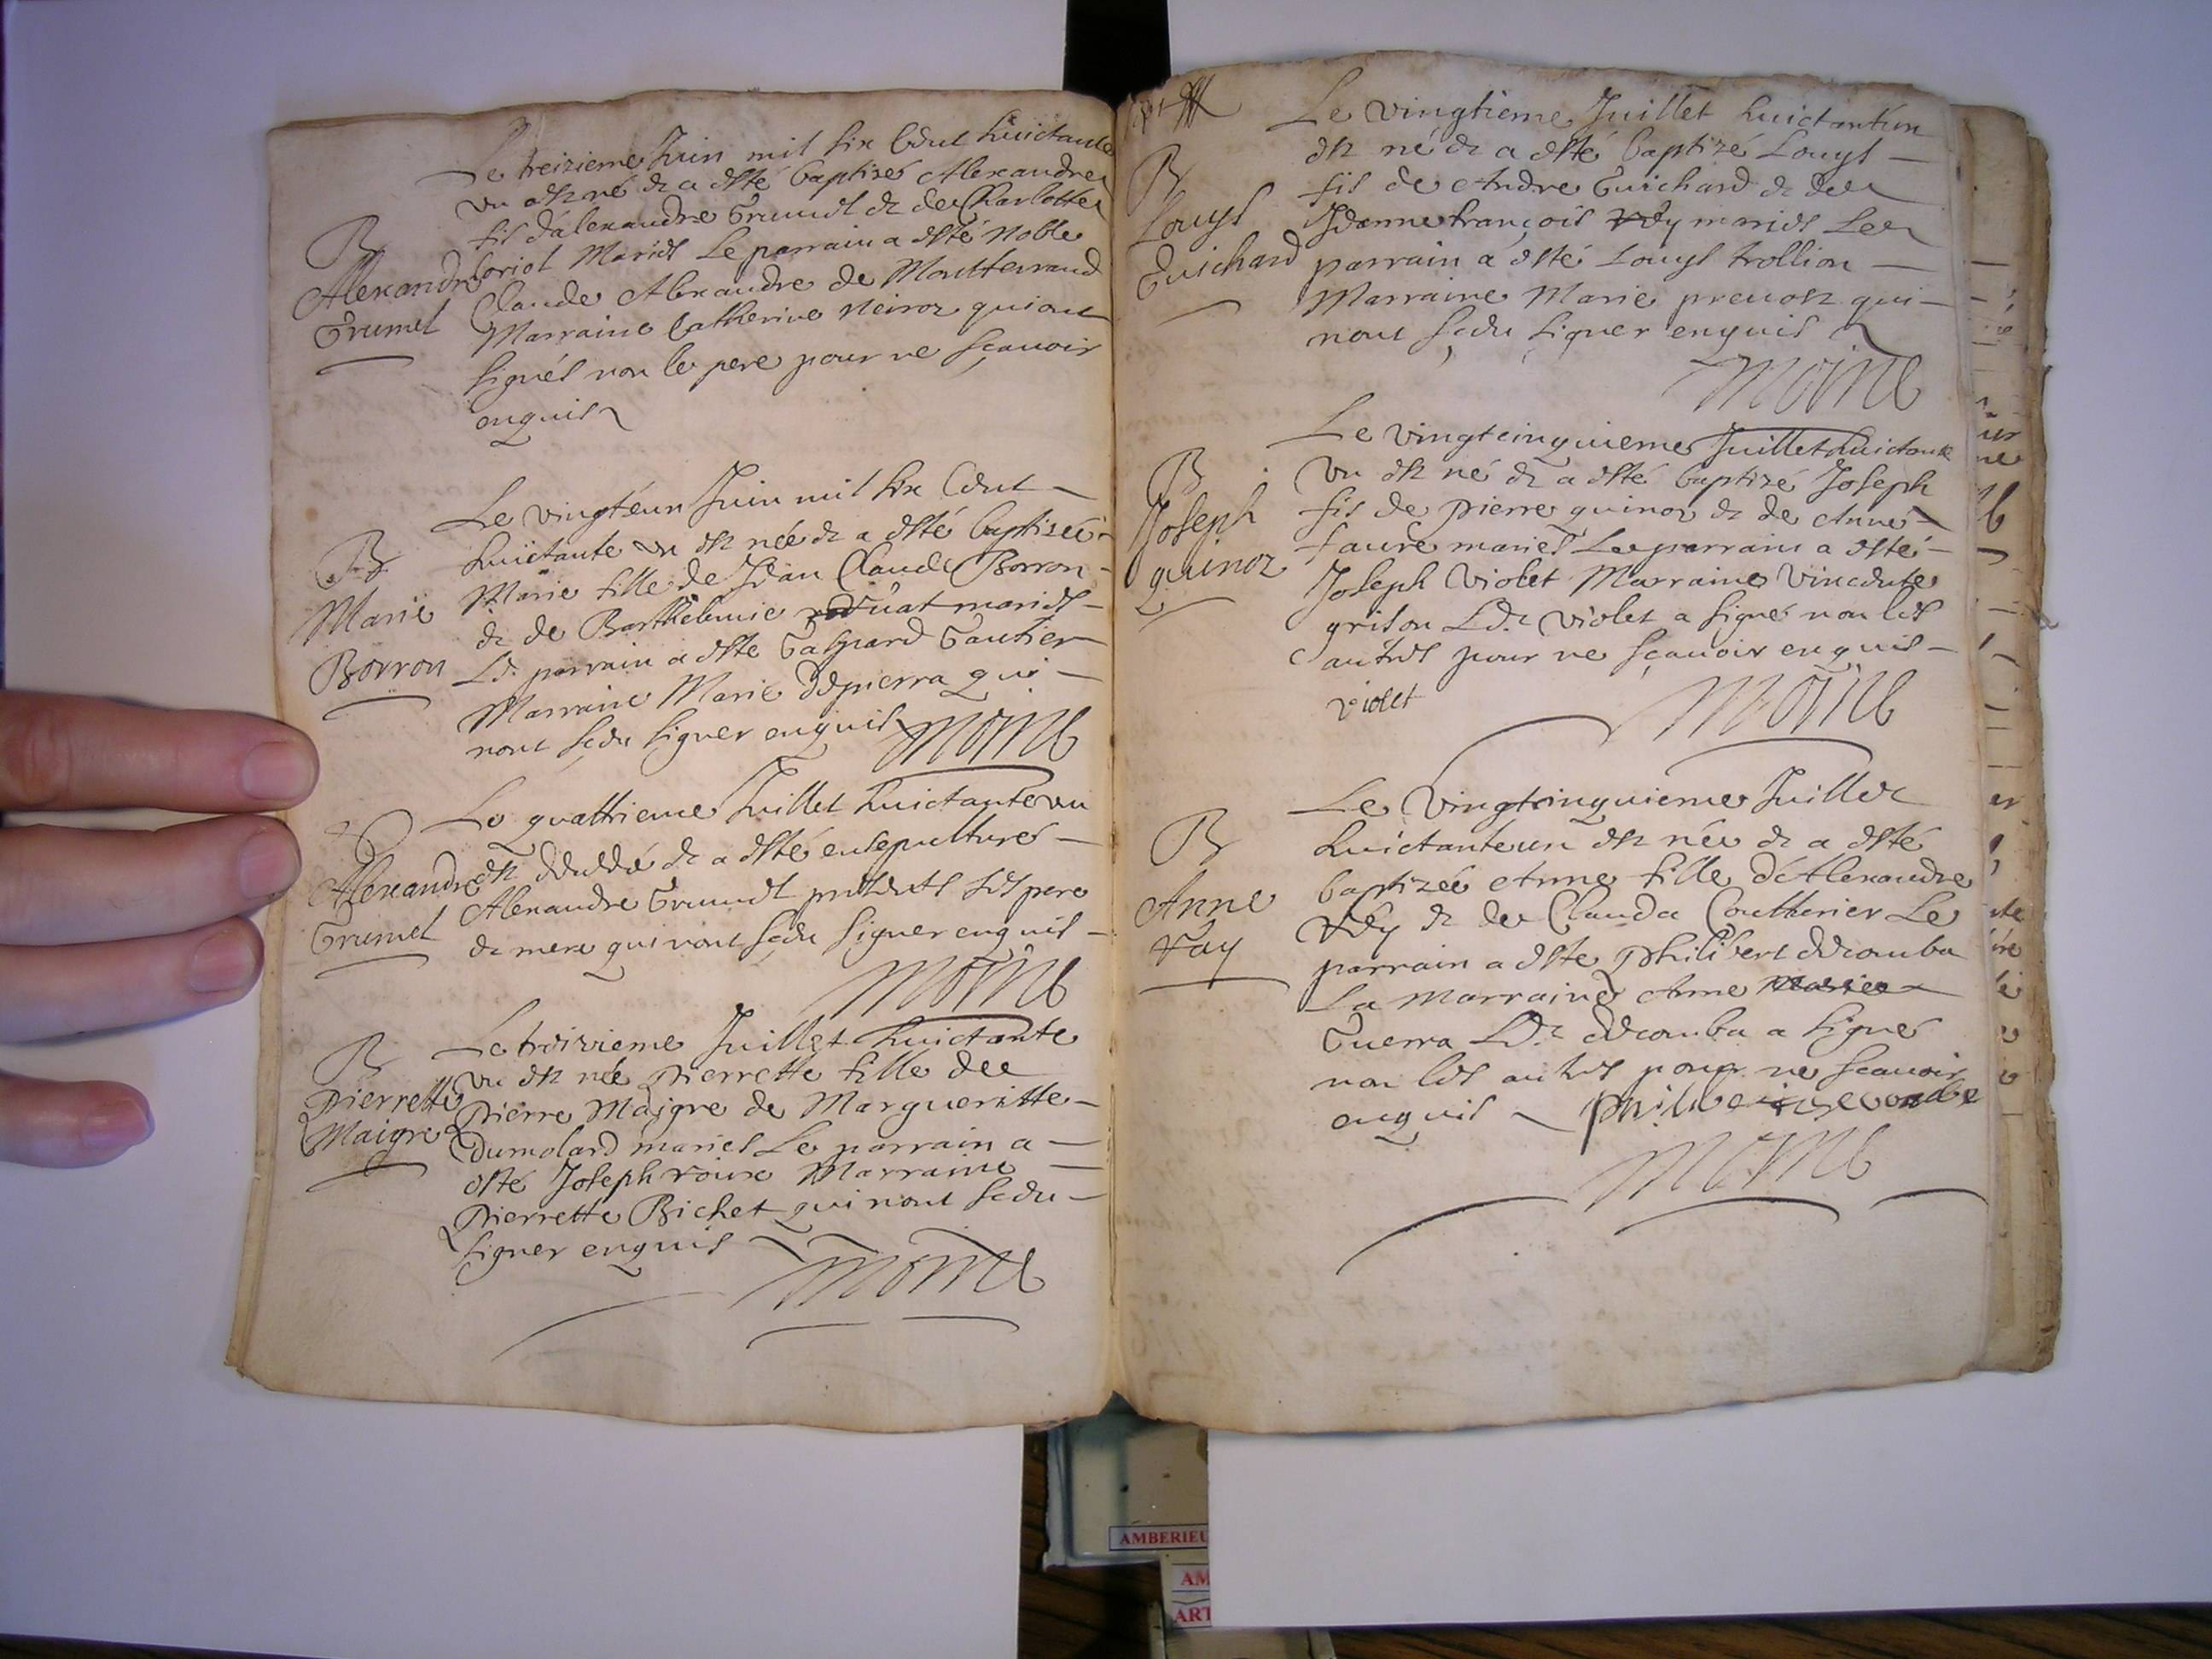 Le treizieme Juin mil six cent huictante
un est né et a esté baptisé Alexandre
fils d'alexandre Grumel et de Charlotte
B
Alexandre
Grumel
Loriol Mariés Le parrain a esté Noble
Claude Alexandre de Montferrand
Marraine Catherine Neiroz qui ont
signés non le pere pour ne sçauoir
enquis
Le vingtéun Juin mil six Cent
huictante un est née et a esté baptizée
B
Marie
Borron
Marie fille de Jean Claude Borron
et de Barthelemie mariés
Le parrain a esté Gaspard Gautier
Marraine Marie Depierra qui
nont sceu signer enquis
Moine
Le quattrieme Juillet huictante un
Alexandre
Grumel
est decedé et a esté ensepulturé
Alexandre Grumel presents ses pere
et mere qui nont sceu signer enquis
Moine
Le troizieme Juillet huictante
B
Pierrette
Maigre
un est née Pierrette fille de
Pierre Maigre de Margueritte
Dumolard mariés Le parrain a
esté Joseph roux Marraine
Pierrette Bichet qui nont sceu
signer enquis
Moine
Le vingtieme Juillet huictantun
est né et a esté baptizé Louys
B
Louys
Guichard
fils de Andre Guichard et de
Jeanne françois mariés Le
parrain a esté Louys trollion
Marraine Marie preuost qui
nont sceu signer enquis
Moine
Le vingtcinquieme Juillet huictante
un est né et a esté baptizé Joseph
B
Joseph
quinoz
fils de Pierre quinoz et de Anne
faure mariés Le parrain a esté
Joseph Violet Marraine Vincente
grison Led. Violet a signé non les
autres pour ne sçauoir enquis
violet
Moine
Le Vingtcinquieme Juillet
huictanteun est née et a esté
B
Anne
Vay
baptizée Anne fille d'Alexandre
Vey et de Clauda Coutturier Le
parrain a esté Philibert decomba
La Marraine Anne
Guerra Led. decomba a signé
non les autres pour ne scauoir
enquis
Moine
AMBERIEU
AM
ART